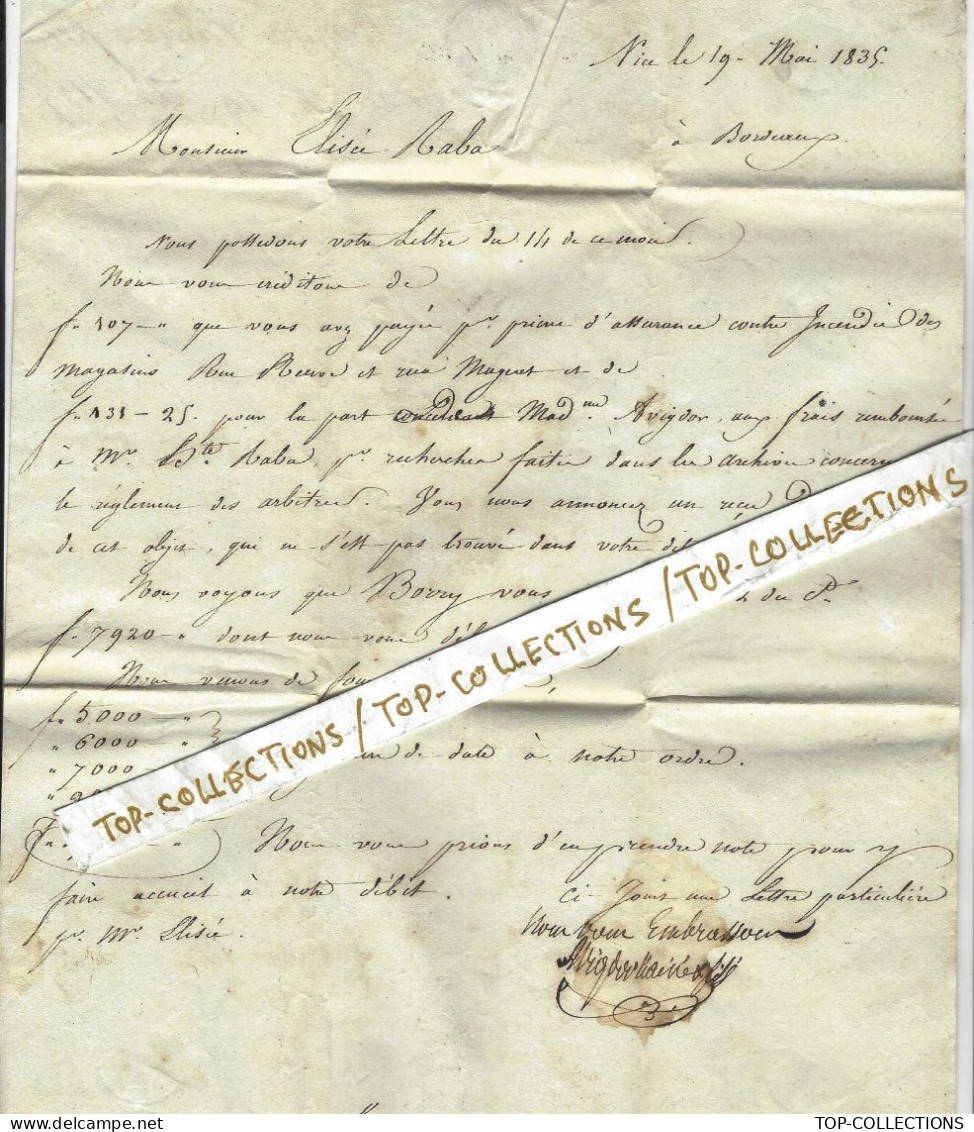 Nice le 19 - Mai 1835.
Monsieur Elisée Raba à Bordeaux
Nous possedons votre Lettre du 14 de ce mois.
Nous vous créditons de
f. 107 - " que vous avez payée pr. prime d'assurance contre Incendie des
magasins Rue et rue et de
f. 131 - 25. pour la part Madme Avigdor, aux frais remboursés
à Mr. Raba, pr. recherches faites dans les archives
le réglement des arbitres. Vous nous annoncez un reçu
de cet objet, qui ne s'est pas trouvé dans votre
Nous voyons que Borry vous du Ct
f. 7920 - " dont nous vous
Nous venons de
f. 5000 - "
" 6000 - "
" 7000 de date à notre ordre.
Nous vous prions d'en prendre note pour y
faire accueil à notre débit. Ci Joint une Lettre particulière
pr. Mr. Elisée. Nous vous Embrassons
Avigdor & fils
TOP-COLLECTIONS / TOP-COLLECTIONS / TOP-COLLECTIONS
TOP-COLLECTIONS